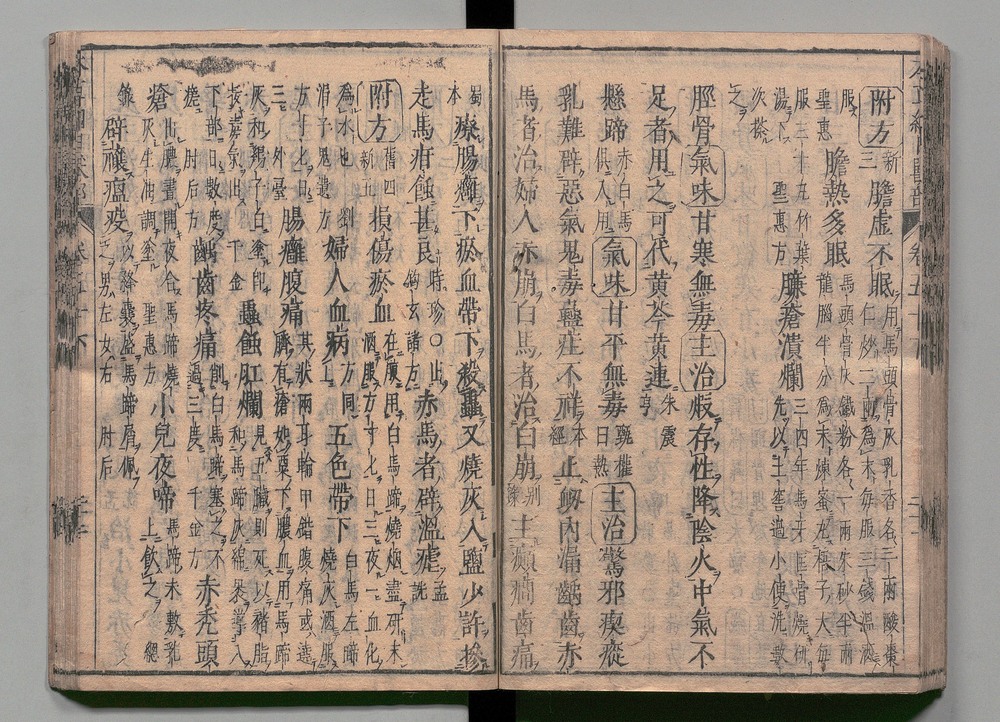 附方 新三 膽虛不眠 用馬頭骨灰乳香各一兩酸棗仁炒二兩為末每服二錢溫酒服
聖惠 膽熱多眠 馬頭骨灰鐵粉各一兩朱砂半兩龍腦半分為末煉蜜丸梧子大每
服三十丸竹葉湯下 聖惠方 臁瘡潰爛 三四年馬牙匡骨燒研先以土窖過小便洗數
次搽之
脛骨 氣味 甘寒無毒 主治 煅存性降陰火中氣不
足者用之可代黃芩黃連 朱震亨
懸蹄 赤白馬俱入用 氣味 甘平無毒 甄權曰熱 主治 驚邪瘈瘲
乳難辟惡氣鬼毒蠱疰不祥 本經 止衄內漏齲齒赤
馬者治婦人赤崩白馬者治白崩 別錄 主癲癇齒痛
蜀本 療腸癰下瘀血帶下殺蟲又燒灰入鹽少許摻
走馬疳蝕甚良 時珍○出鈎玄諸方 赤馬者辟溫瘧 孟詵
附方 舊四新 損傷瘀血 在腹用白馬蹄燒烟盡研末酒服方寸七日三夜一血化
為水也 劉涓子鬼遺方 婦人血病 方同上 五色帶下 白馬左蹄燒灰酒服
方寸七日三 外臺 腸癰腹痛 其狀兩耳輪甲錯腹痛或遶臍有瘡如粟下膿血用馬蹄
灰和雞子白塗即拔毒氣出 千金 蟲蝕肛爛 見五臟則死以豬脂和馬蹄灰綿裹導入
下部日數度瘥 肘后方 齲齒疼痛 削白馬蹄塞之不過三度 千金方 赤禿頭
瘡 出膿晝開夜合馬蹄燒灰生油調塗 聖惠方 小兒夜啼 馬蹄末敷乳上飲之 總
錄 辟禳瘟疫 以絳囊盛馬蹄屑佩之男左女右 肘后